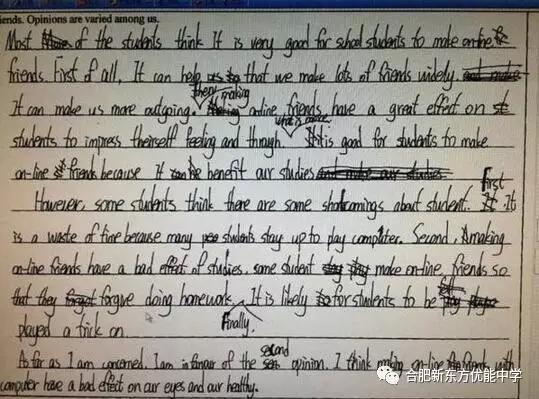 iends. Opinions are varied among us.
Most of the students think It is very good for school students to make on-line
friends. First of all, It can help us that we make lots of friends widely.
It can make us more outgoing. then, making on-line friends have a great effect on
students to impress theirself feeling and through. what's more, It is good for students to make
on-line friends because It can benefit our studies
However, some students think there are some shortcomings about student. First It
is a waste of time because many students stay up to play computer. Second, making
on-line friends have a bad effect of studies, some student make on-line friends so
that they forgive doing homework. Finally, It is likely for students to be
played a trick on.
As far as I am concerned, I am in favour of the second opinion. I think making on-line friends with
computer have a bad effect on our eyes and our healthy.
合肥新东方优能中学